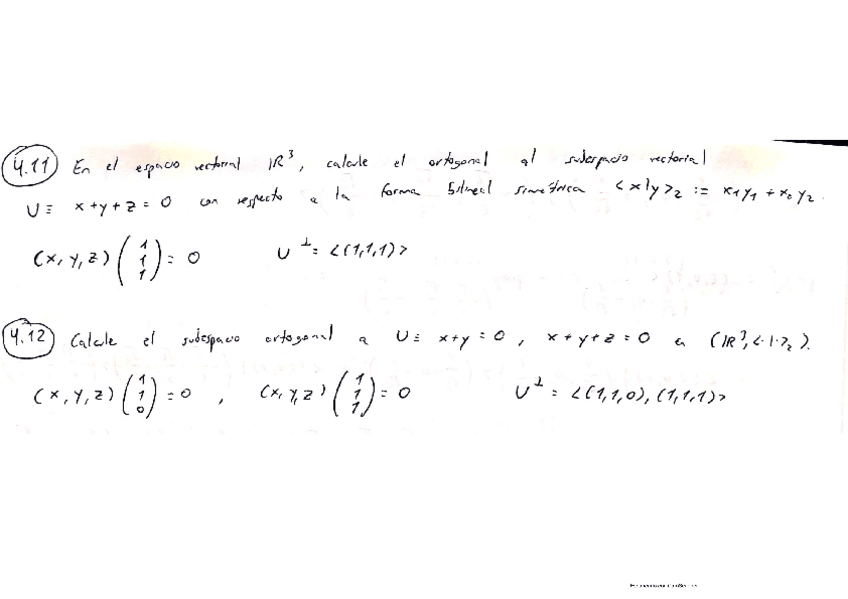 4.11 En el espacio vectorial IR³, calcule el ortogonal al subespacio vectorial
U ≡ x+y+z = 0 con respecto a la forma bilineal simétrica <x|y>₂ := x₁y₁ + x₂y₂.
(x, y, z) (1 1 1) = 0 U^⊥ = <(1,1,1)>
4.12 Calcule el subespacio ortogonal a U ≡ x+y = 0, x+y+z = 0 en (IR³, <·|·>₂).
(x, y, z) (1 1 0) = 0, (x, y, z) (1 1 1) = 0 U^⊥ = <(1,1,0), (1,1,1)>